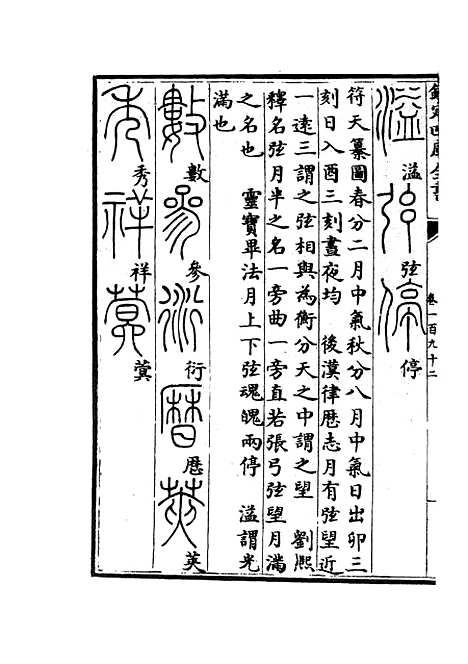 欽定四庫全書
卷一百九十二
溢 弦 停
符天纂圖春分二月中氣秋分八月中氣日出卯三
刻日入酉三刻晝夜均 後漢律厯志月有弦望近
一遠三謂之弦相與為衡分天之中謂之望 劉熙
釋名弦月半之名一旁曲一旁直若張弓弦望月滿
之名也 靈寶畢法月上下弦魂魄兩停 溢謂光
滿也
數 參 衍 厯 莢
秀 祥 蓂